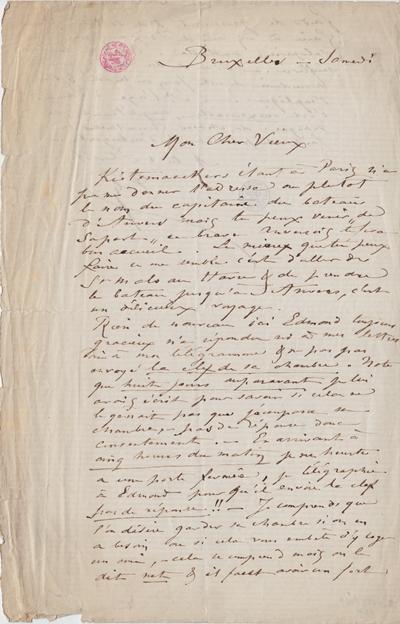 Bruxelles – Samedi
Mon Cher Vieux
Kistemaeckers étant à Paris n'a
pu me donner l'adresse ou plutot
le nom du capitaine du bateau
d'Anvers mais tu peux venir, de
bon accueil. Le mieux que tu peux
faire ce me semble c'est d'aller de
St malo au Havre & de prendre
le bateau jusqu'à Anvers, c'est
un délicieux voyage.
Rien de nouveau ici Edmond toujours
gracieux n'a répondu ni à mes lettres
ni à mon télégramme & n'a pas
envoyé la clef de sa chambre. Note
que huit jours auparavant je lui
avais écrit pour savoir si cela ne
le gênait pas que j'occupasse sa
chambre pas de réponse donc
consentement. – En arrivant à
cinq heures du matin je me heurte
à une porte fermée, je télégraphie
à Edmond pour qu'il envoie la clef
pas de réponse!! – Je comprends que
l'on désire garder sa chambre si on en
a besoin ou si cela vous embête d'y loger
un ami, – cela se comprend mais on le
dit net & il faut avoir un fort